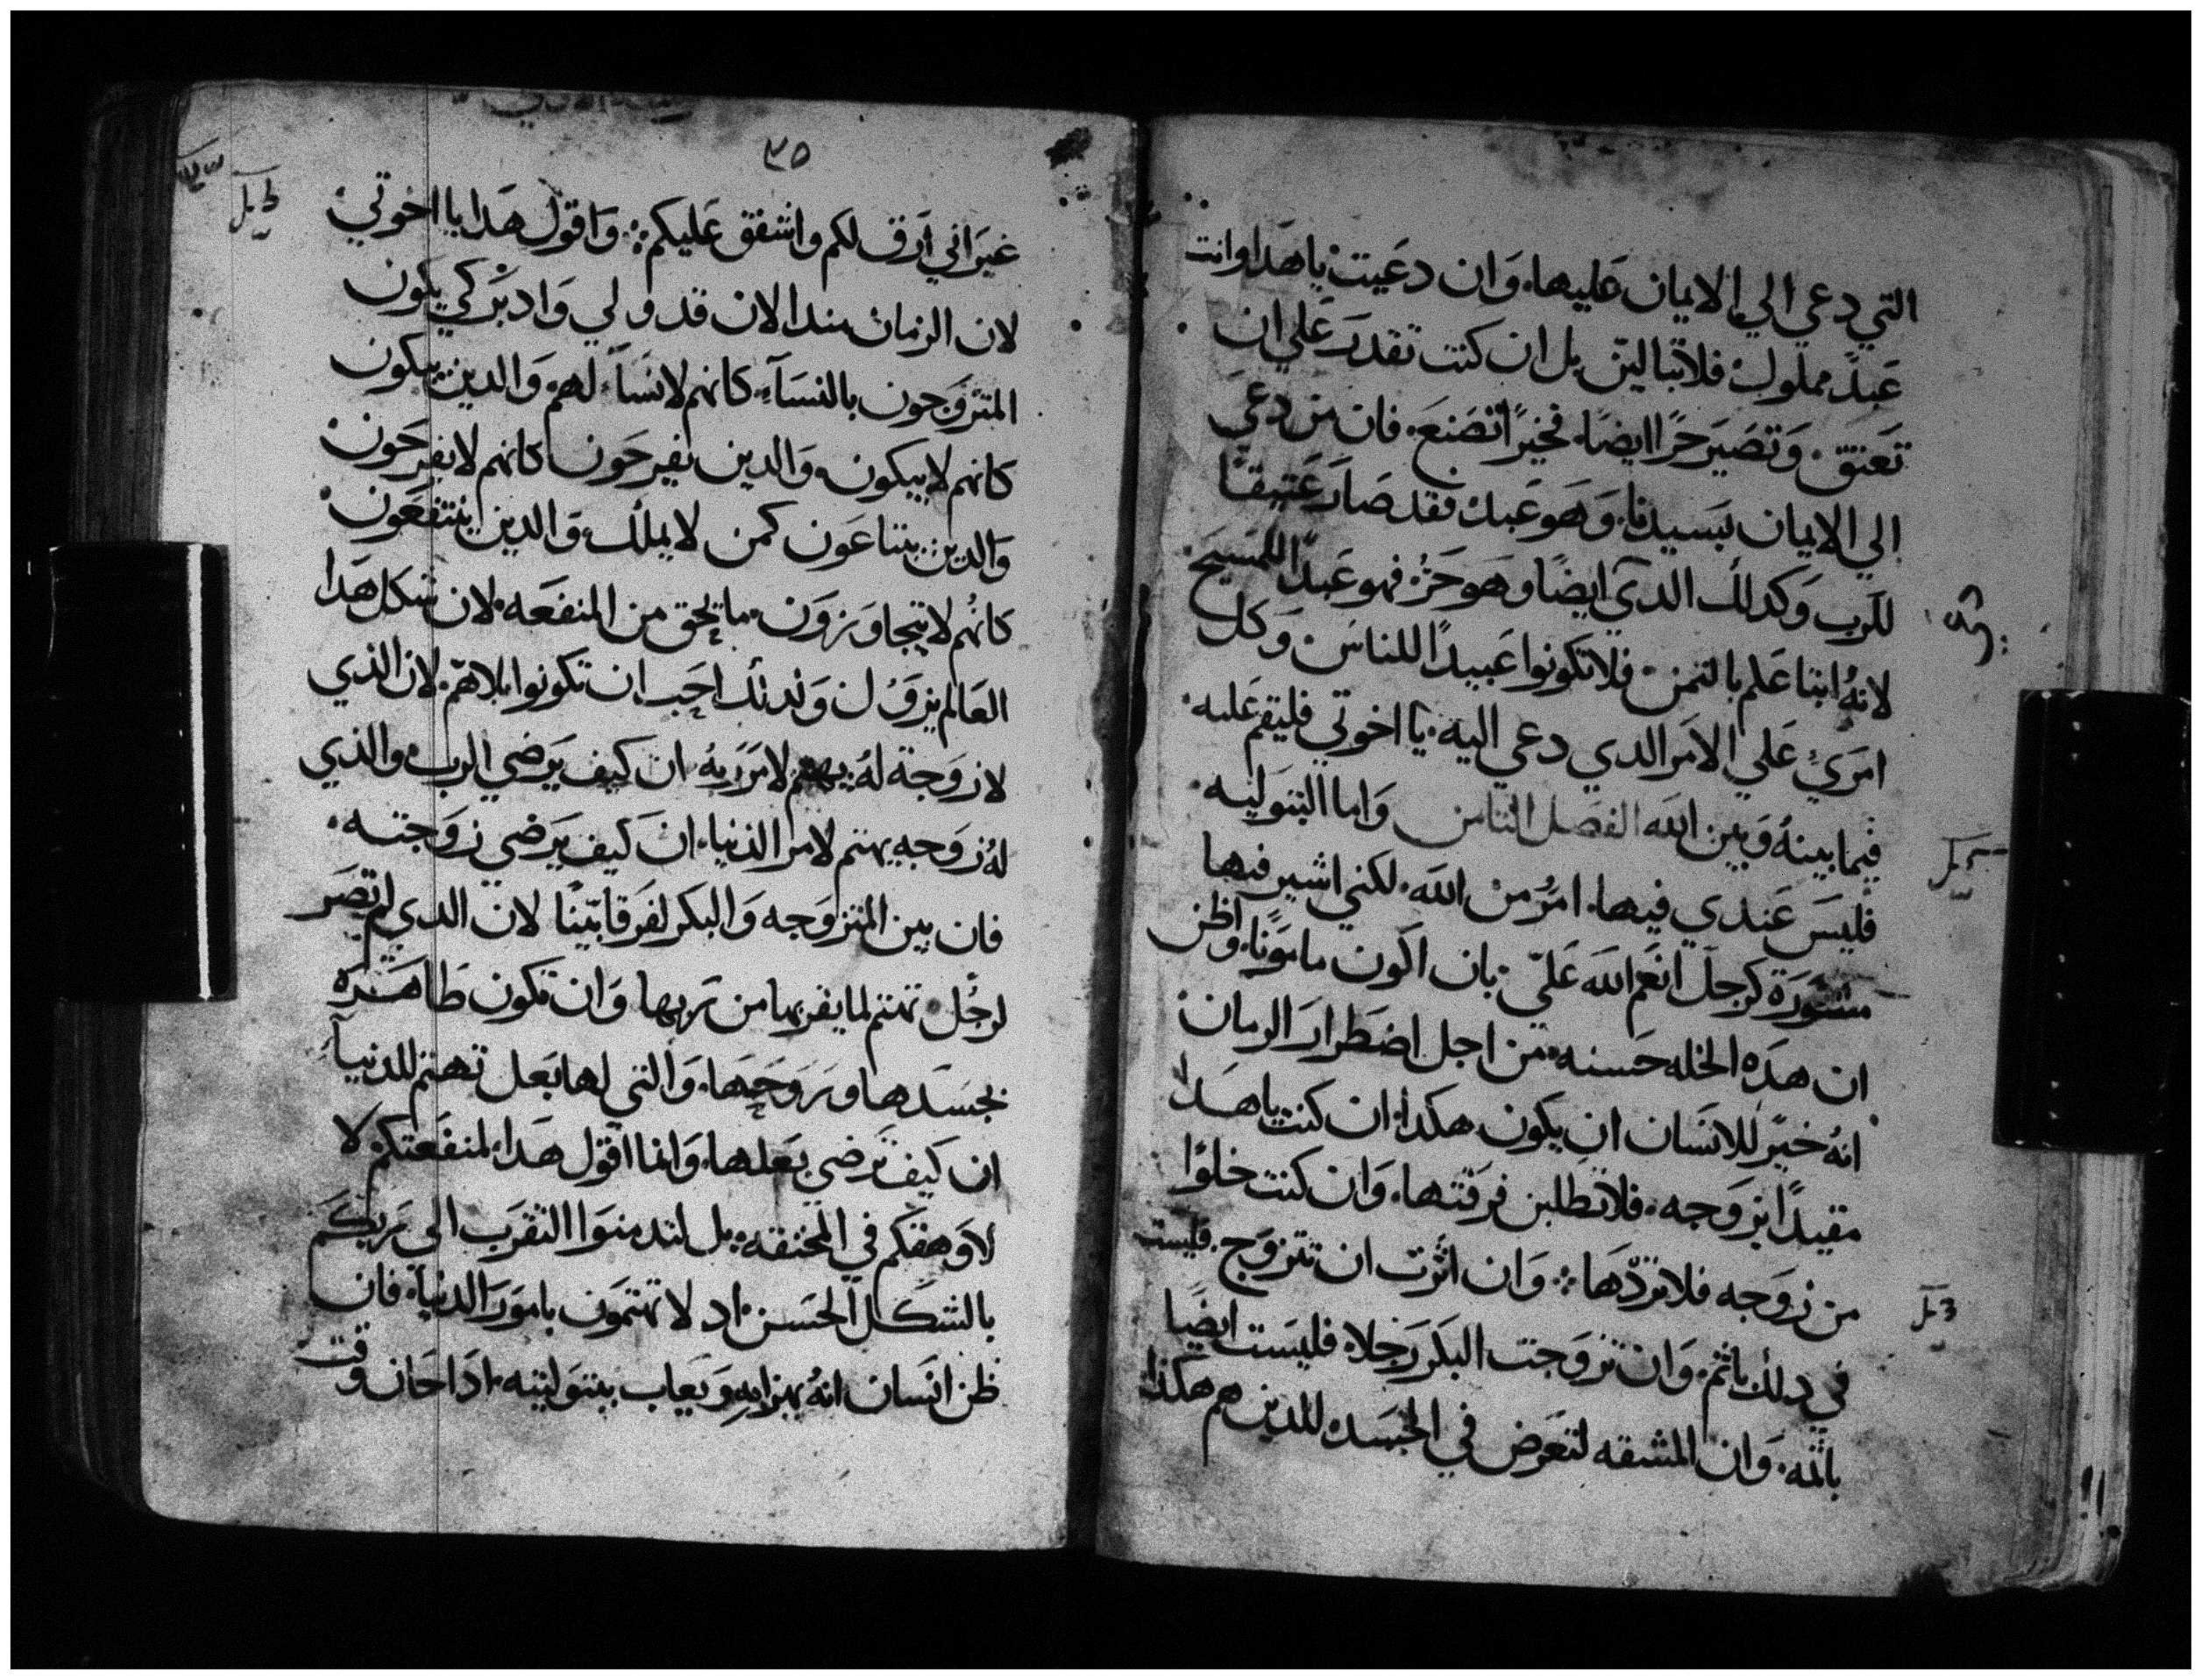 التي دعي الي الايمان عليها، وان دعيت يا هدا وانت
عبدً مملوك فلا تبالين بل ان كنت تقدر علي ان
تعتق. وتصير حرًا ايضا، فخيرًا تصنع. فان من دعي
الي الايمان بسيدنا، وهو عبد فقد صار عتيقًا
للرب وكدلك الدي ايضًا وهو حرٌ فهو عبدًا للمسيح
لانهُ ابتاعكم بالتمن فلا تكونوا عبيدًا للناس وكل
امريً علي الامر الدي دعي اليه. يا اخوتي فليقم عليه.
فيما بينهُ وبين الله الفصل الثامن واما البتوليه
فليس عندي فيها، امرٌ من الله، لكني اشير فيها
مشورة كرجل انعم الله عليّ بان اكون مامونًا، واظن
ان هده الخله حسنه من اجل اضطرار الزمان
انهُ خيرٌ للانسان ان يكون هكدا، ان كنت يا هدا
مقيدًا بزوجه، فلا تطلبن فرقتها، وان كنت خلوًا
من زوجه فلا تردّها ؞ وان اثرت ان تتزوج. فليست
في دلك باثم، وان تزوجت البكر رجلا، فليست ايضًا
باثمه. وان المشقه لتعرض في الجسد للدين هم هكدا
٣٥
غير اني ارق لكم واشفق عليكم ؞ واقول هدا يا اخوتي
لان الزمان مند الان قد ولي وادبر كي يكون
المتزوجون بالنسآء كانهم لا نسآ لهم والدين يبكون
كانهم لا يبكون، والدين يفرحون كانهم لا يفرحون
والدين يبتاعون كمن لا يملك والدين ينتفعون
كانهم لا يتجاوزون ما يحق من المنفعه. لان شكل هدا
العالم يزول ن ولدلك احب ان تكونوا بلا همّ. لان الذي
لا زوجة لهُ يهتم لامر ربهُ ان كيف يرضي الرب والذي
لهُ زوجه يهتم لامر الدنيا، ان كيف يرضي زوجته.
فان بين المتزوجه والبكر لفرقا بيّنًا لان الدي لم تصر
لرجل تهتم لما يقربها من ربها وان تكون طاهره
بجسدها وروحها، والتي لها بعل تهتم للدنيآ
ان كيف ترضي بعلها، وانما اقول هدا لمنفعتكم لا
لاوهقكم في المخنقه، بل لتدمنوا التقرب الي ربكم
بالشكل الحسن اد لا تهتمون بامور الدنيا، فان
ظن انسان انهُ يهزا به ويعاب ببتوليته. ادا حان وقت